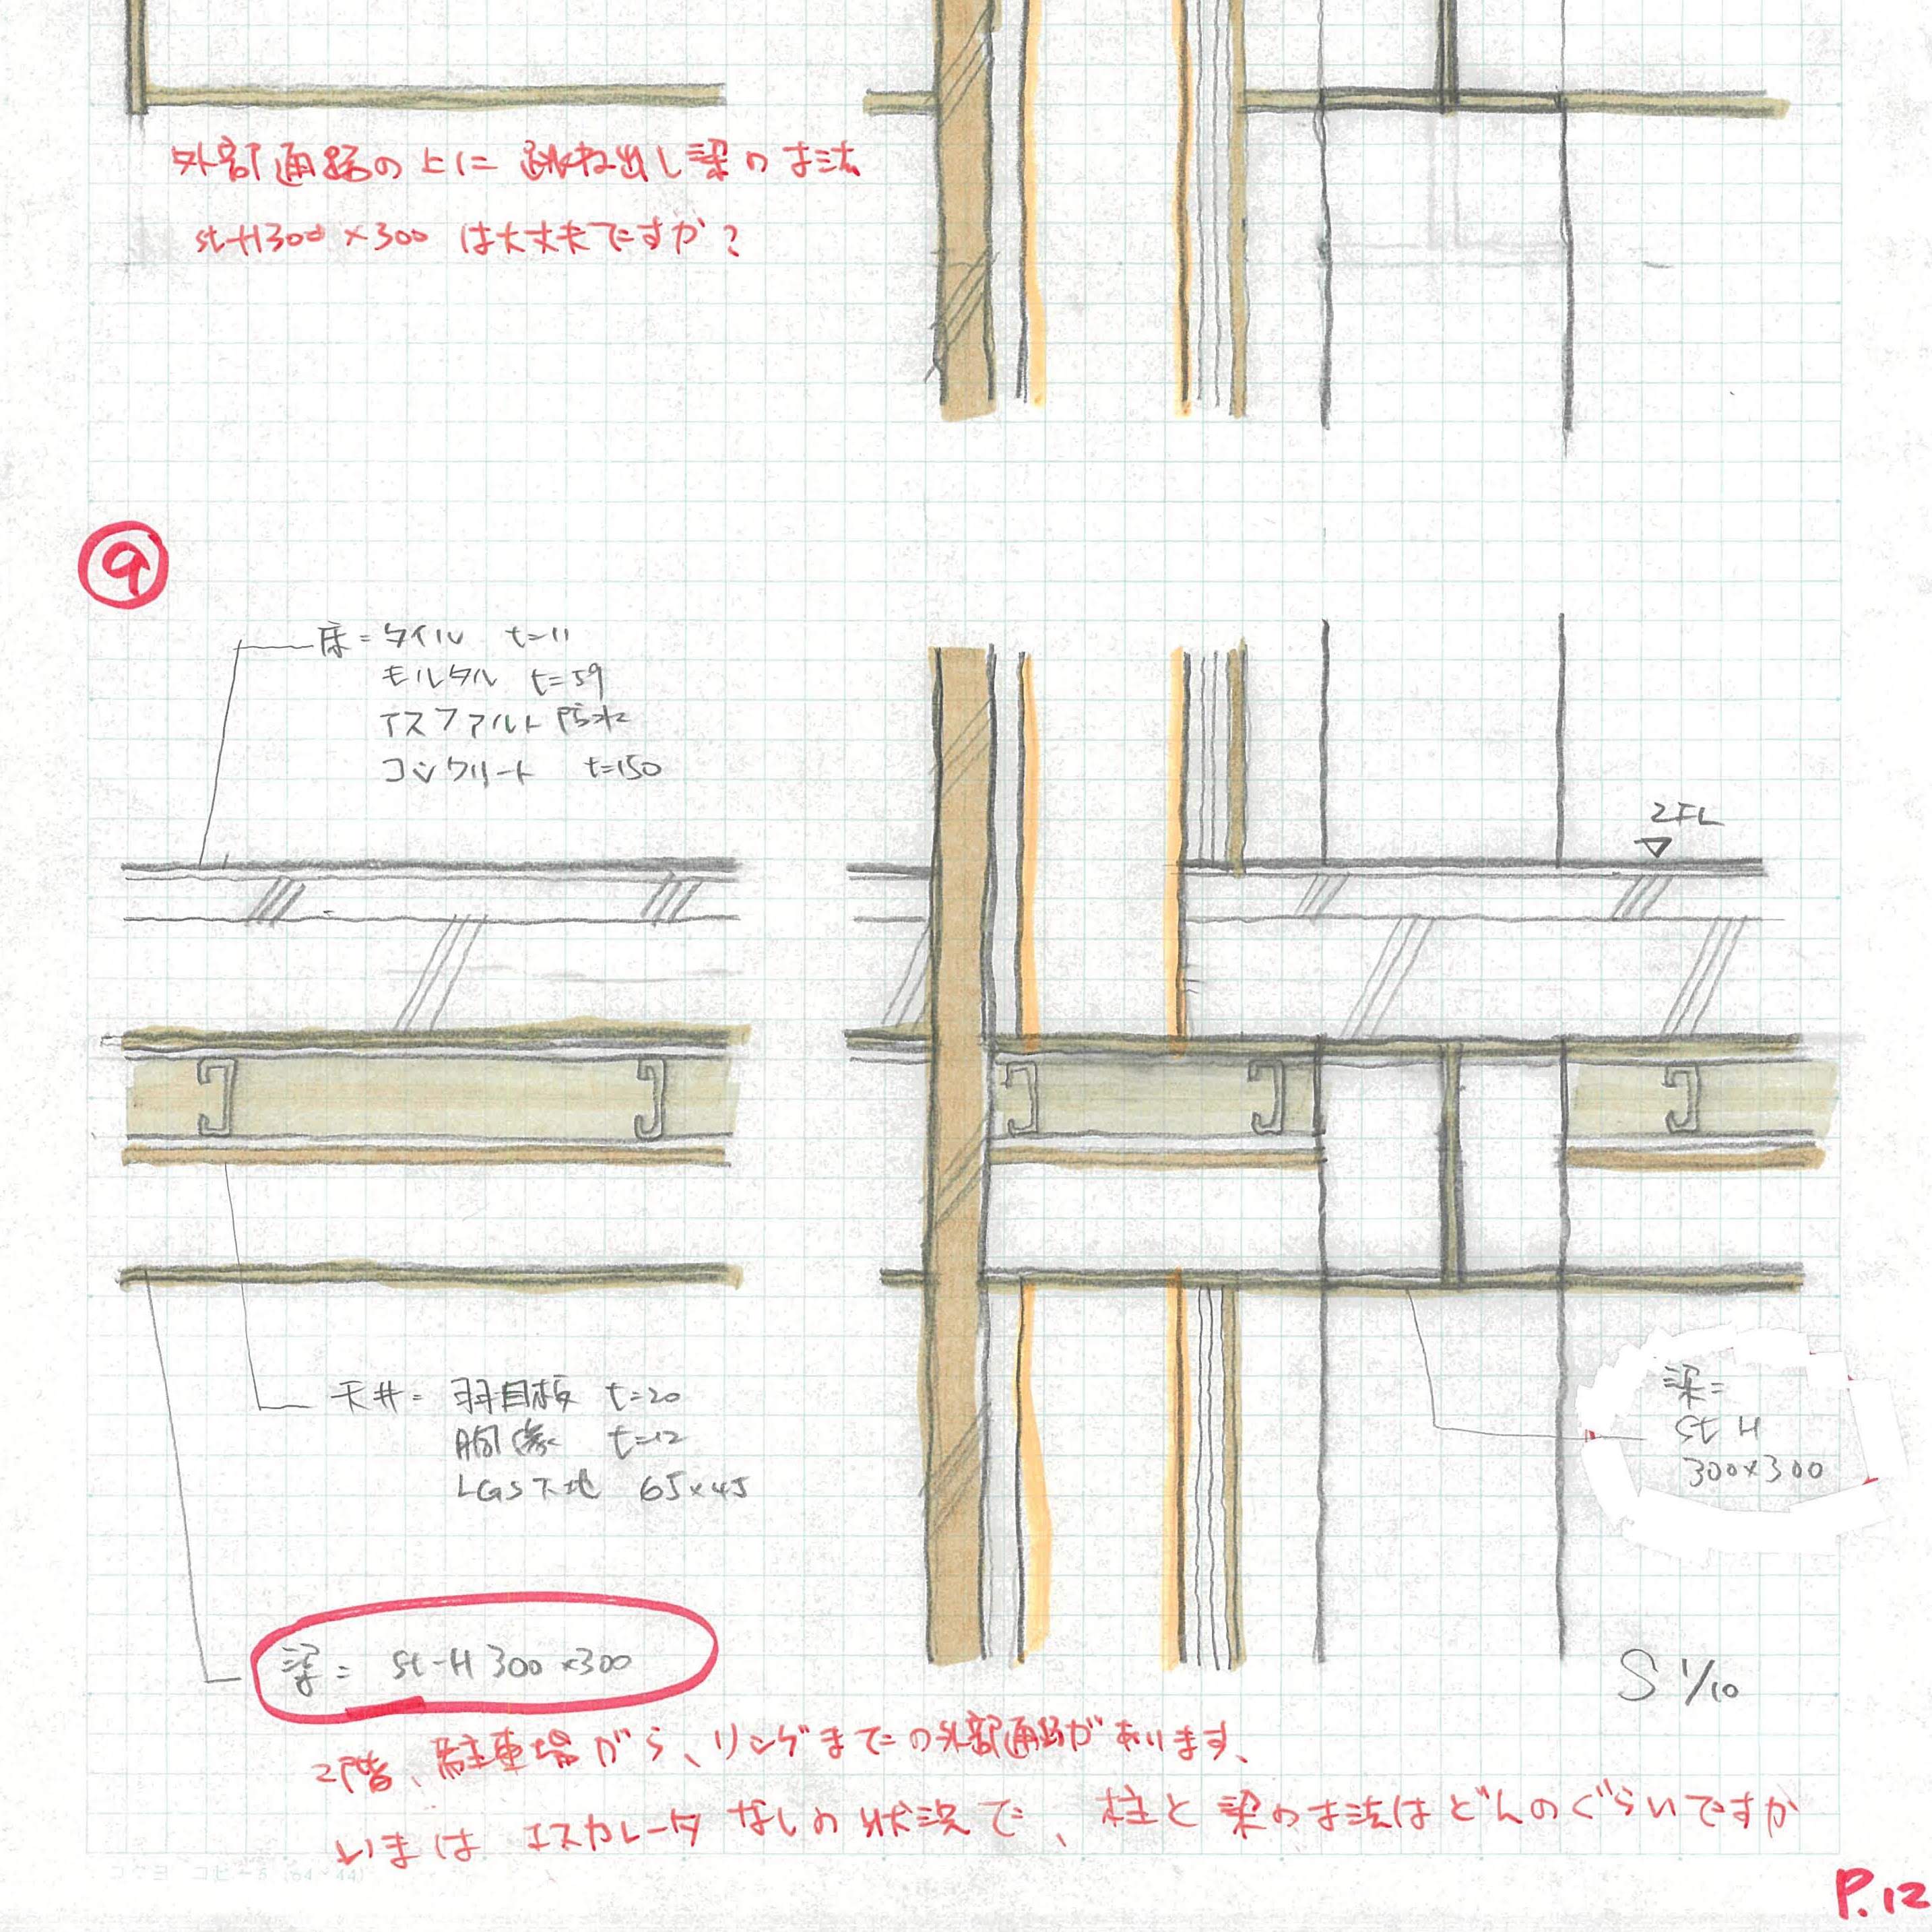 外部通路の上に 跳ね出し梁の寸法
st-H300×300 は大丈夫ですか？
9
床=タイル t=11
モルタル t=59
アスファルト防水
コンクリート t=150
2FL
天井= 羽目板 t=20
胴縁 t=12
LGS下地 65×45
梁=
st H
300×300
梁= st-H 300×300
S 1/10
2階、駐車場がら、リングまでの外部通路があります、
いまは エスカレータ なしの状況で、柱と梁の寸法はどんのぐらいですか
P.12
コクヨ コピー5 (64-44)